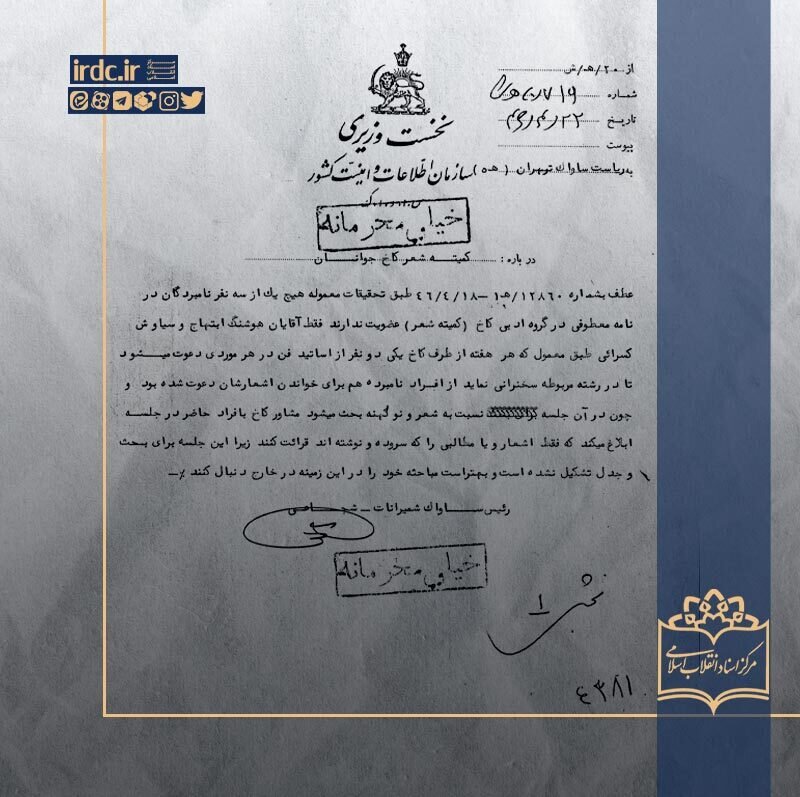 irdc.ir
مرکز اسناد انقلاب اسلامی
از ۲۰/ه/ش
شماره
تاریخ
پیوست
نخست وزیری
سازمان اطلاعات و امنیت کشور
به ریاست ساواك تهران (ه ۱)
خیلی محرمانه
در باره: کمیته شعر کاخ جوانان
عطف بشماره ۱۲۸۶۰/ه ۱ – ۴۶/۴/۱۸ طبق تحقیقات معموله هیچ یك از سه نفر نامبردگان در
نامه معطوفی در گروه ادبی کاخ (کمیته شعر) عضویت ندارند فقط آقایان هوشنگ ابتهاج و سیاوش
کسرائی طبق معمول که هر هفته از طرف کاخ یکی دو نفر از اساتید فن در هر موردی دعوت میشود
تا در رشته مربوطه سخنرانی نماید از افراد نامبرده هم برای خواندن اشعارشان دعوت شده بود و
چون در آن جلسه نسبت به شعر و نو کهنه بحث میشود مشاور کاخ بافراد حاضر در جلسه
ابلاغ میکند که فقط اشعار و یا مطالبی را که سروده و نوشته اند قرائت کنند زیرا این جلسه برای بحث
و جدل تشکیل نشده است و بهتر است مباحثه خود را در این زمینه در خارج دنبال کنند
رئیس ساواك شمیرانات –
خیلی محرمانه
بخش
۱
۴۳۸۱
مرکز اسناد انقلاب اسلامی